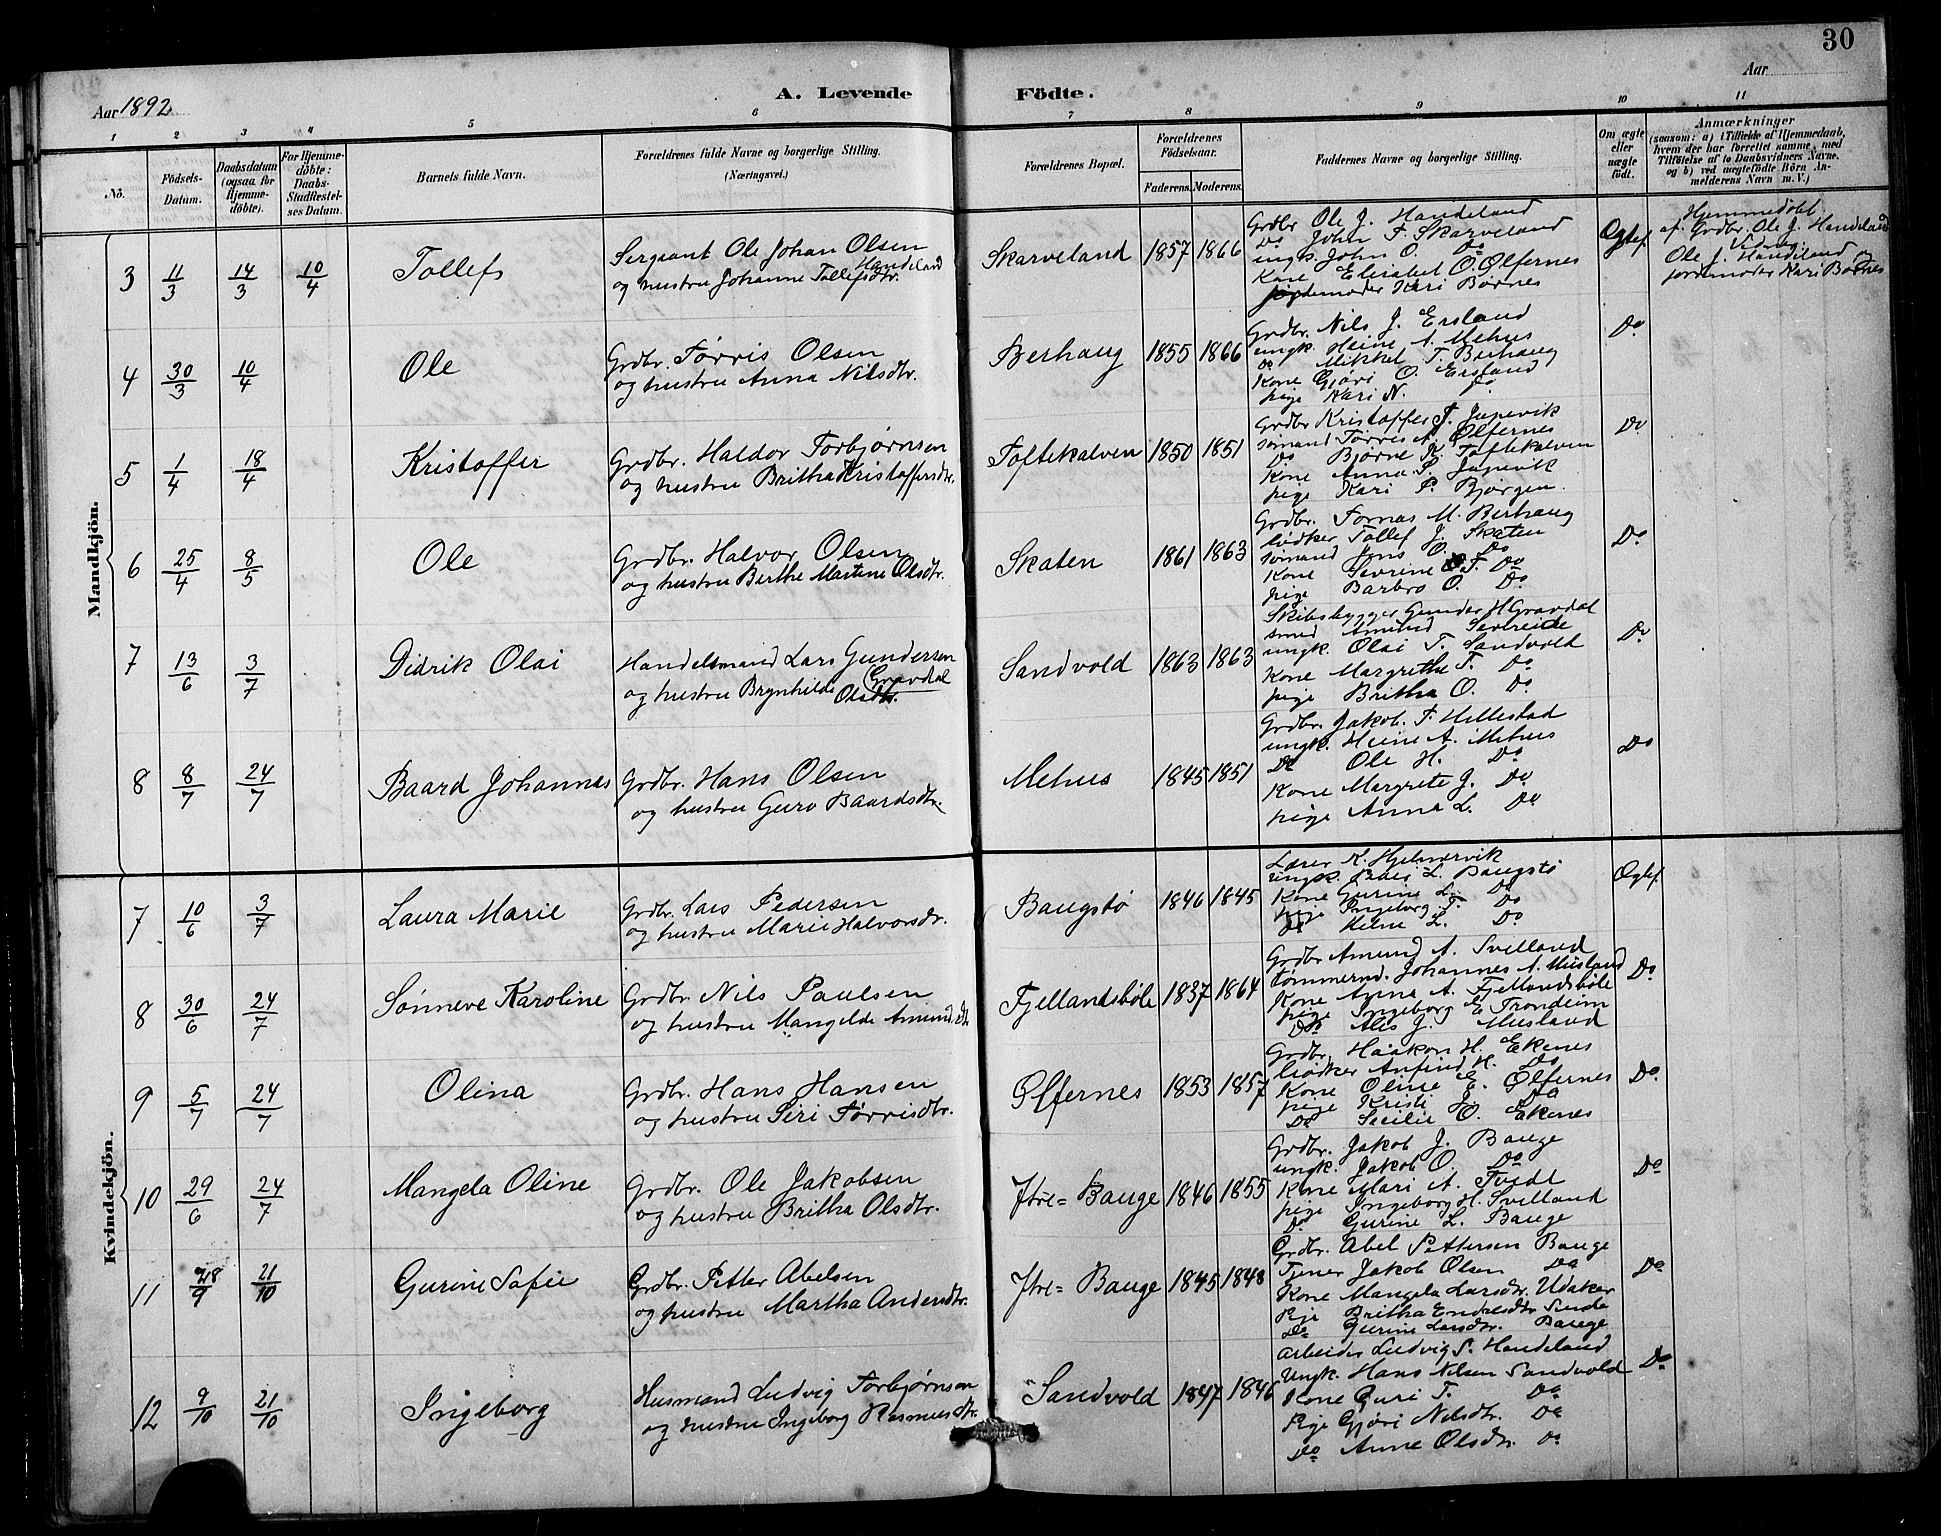 30
Aar 1892
A. Levende Födte.
Aar
1 2 3 4 5 6 7 8 9 10 11
No.
Födsels-Datum.
Daabsdatum (ogsaa for Hjemme-döbte).
For Hjemme-döbte: Daabs-Stadfæstel-ses Datum.
Barnets fulde Navn.
Forældrenes fulde Navne og borgerlige Stilling. (Næringsvei.)
Forældrenes Bopæl.
Forældrenes Födselsaar.
Faderens. Moderens.
Faddernes Navne og borgerlige Stilling.
Om ægte eller uægte födt.
Anmærkninger
(saasom: a) i Tilfælde af Hjemmedaab, hvem der har forrettet samme, med Tilföielse af to Daabsvidners Navne, og b) ved uægtefödte Börn An-melderens Navn m. V.)
Mandkjön.
3 11/3 14/3 10/4 Tollef
Sergeant Ole Johan Olsen Handeland
og hustru Johanne Tollefsdtr.
Skarveland 1857 1866
Grdbr Ole J. Handeland
Do John T. Skarveland
ungk. John O. Do
Kone Elisabet O. Ølfernes
jordemoder Kari Bornes
Ægtef.
Hjemmedøbt
af Grdbr. Ole J. Handeland
Vidner:
Ole J. Handeland og
jordemoder Kari Bornes
4 30/3 10/4 Ole
Grdbr. Tørris Olsen
og hustru Anna Nilsdtr.
Berhaug 1855 1866
Grdbr. Nils J. Ersland
ungk. Heine A. Mehus
Do Mikkel T. Berhaug
Kone Gjøri O. Ersland
pige Kari N. Do
Do
5 1/4 18/4 Kristoffer
Grdbr. Haldor Torbjørnsen
og hustru Britha Kristoffersdtr.
Toftekalven 1850 1851
Grdbr Kristoffer T. Jupevik
sømand Tørres A. Ølfernes
Do Bjørne K. Toftekalven
Kone Anna P. Jupevik
pige Kari P. Bjørgen.
Do
6 25/4 8/5 Ole
Grdbr. Halvor Olsen
og hustru Berthe Martine Olsdtr.
Skaten 1861 1863
Grdbr. Tornas M. Berhaug
bødker Tollef J. Skaten
sømand Jens O. Do
Kone Sevrine T. Do
pige Barbro O. Do
Do
7 13/6 3/7 Didrik Olai
Handelsmand Lars Gundersen Gravdal
og hustru Brynhilde Olsdtr.
Sandvold 1863 1863
Skibsbygger Gunder H Gravdal
smed Amund Sevtreide
ungk. Olai T. Sandvold
Kone Margrethe T. Do
pige Britha O. Do
Do
8 8/7 24/7 Baard Johannes
Grdbr. Hans Olsen
og hustru Guro Baardsdtr.
Mehus 1845 1851
Grdbr. Jakob. T. Hillestad
ungk. Heine A. Mehus
Do Ole H. Do
Kone Margrete J. Do
pige Anna L. Do
Do
Kvindekjön.
7 10/6 3/7 Laura Marie
Grdbr. Lars Pedersen
og hustru Marie Halvorsdr.
Baugstø 1846 1845
Lærer K. Hjelmervik
ungk. L. Baugstø
Kone Gurine L. Do
pige Ingeborg T. Do
Do Helne L. Do
Ægtef.
8 30/6 24/7 Sønneve Karoline
Grdbr Nils Paulsen
og hustru Mangelde Amundsdtr
Fjellandsbøle 1837 1864
Grdbr Amund A. Svelland
tømmermd. Johannes A. Musland
Kone Anna A. Fjellandsbøle
pige Ingeborg E. Trondeim
Do Alis J. Musland
Do
9 5/7 24/7 Olina
Grdbr. Hans Hansen
og hustru Siri Tørrisdtr.
Ølfernes 1853 1857
Grdbr. Haakon H. Ekenes
bødker Anfind H. Do
Kone Oline E. Ølfernes
pige Kristi J. Do
Do Sicilie O. Ekenes
Do
10 29/6 24/7 Mangela Oline
Grdbr. Ole Jakobsen
og hustru Britha Olsdtr.
Ytre= Bauge 1846 1855
Grdbr. Jakob J. Bauge
ungk. Jakob O. Do
Kone Mari A. Tvedt
pige Ingeborg H. Svelland
Do Gurine L. Bauge
Do
11 28/9 21/10 Gurine Sofie
Grdbr. Petter Abelsen
og hustru Martha Andersdtr.
Ytre= Bauge 1845 1848
Grdbr. Abel Pettersen Bauge
Tjener Jakob Olsen Do
Kone Mangela Larsdtr. Udaker
Pige Britha Endresdtr Sunde
Do Gurine Larsdtr. Bauge
Do
12 9/10 21/10 Ingeborg
Husmand Ludvig Torbjørnsen
og hustru Ingeborg Rasmusdtr.
Sandvold 1847 1846
Arbeider Ludvig S. Handeland
Ungk. Hans Nilsen Sandvold
Kone Guri T. Do
Pige Gjøri Nilsdtr. Do
Do Anne Olsdtr. Do
Do